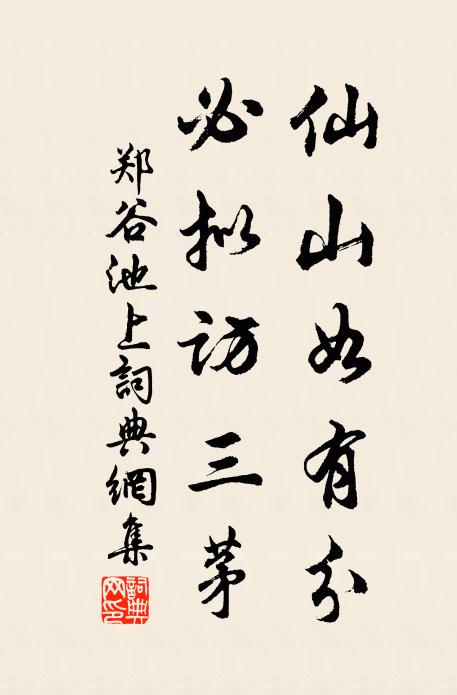 仙山如有分
必拟访三茅
郑谷池上詞典網集
詞典网印